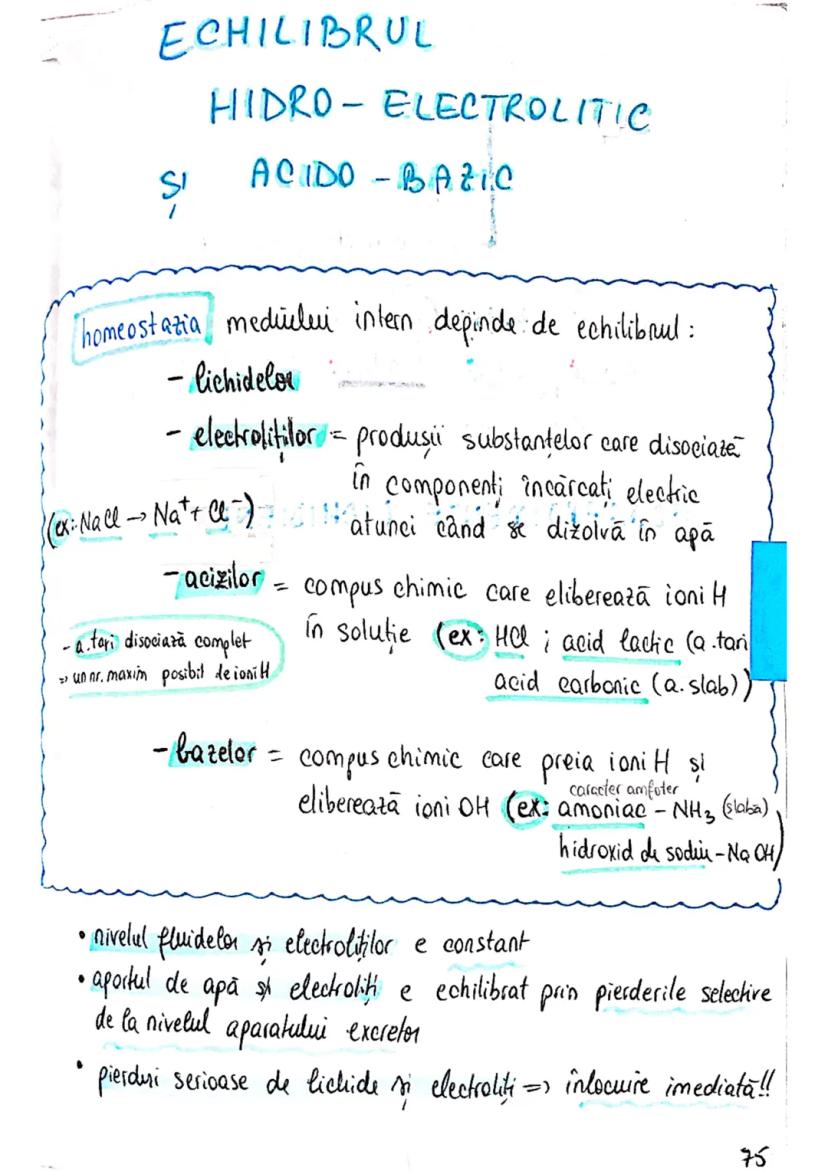 ECHILIBRUL
HIDRO - ELECTROLITIC
ȘI ACIDO - BAZIC
homeostazia mediului intern depinde de echilibrul :
- lichidelor
- electroliților = produșii substanțelor care disociază
în componenți încărcați electric
(ex: NaCl → Na⁺ + Cl⁻)
atunci când se dizolvă în apă
- acizilor = compus chimic care eliberează ioni H
în soluție (ex: HCl ; acid lactic (a.tari
acid carbonic (a.slab))
- a.tari disociază complet
=> un nr. maxim posibil de ioni H
- bazelor = compus chimic care preia ioni H și
caracter amfoter
eliberează ioni OH (ex: amoniac - NH₃ (slabă)
hidroxid de sodiu - NaOH)
• nivelul fluidelor și electroliților e constant
• aportul de apă și electroliți e echilibrat prin pierderile selective
de la nivelul aparatului excretor
• pierduri serioase de lichide și electroliți => înlocuire imediată!!
75